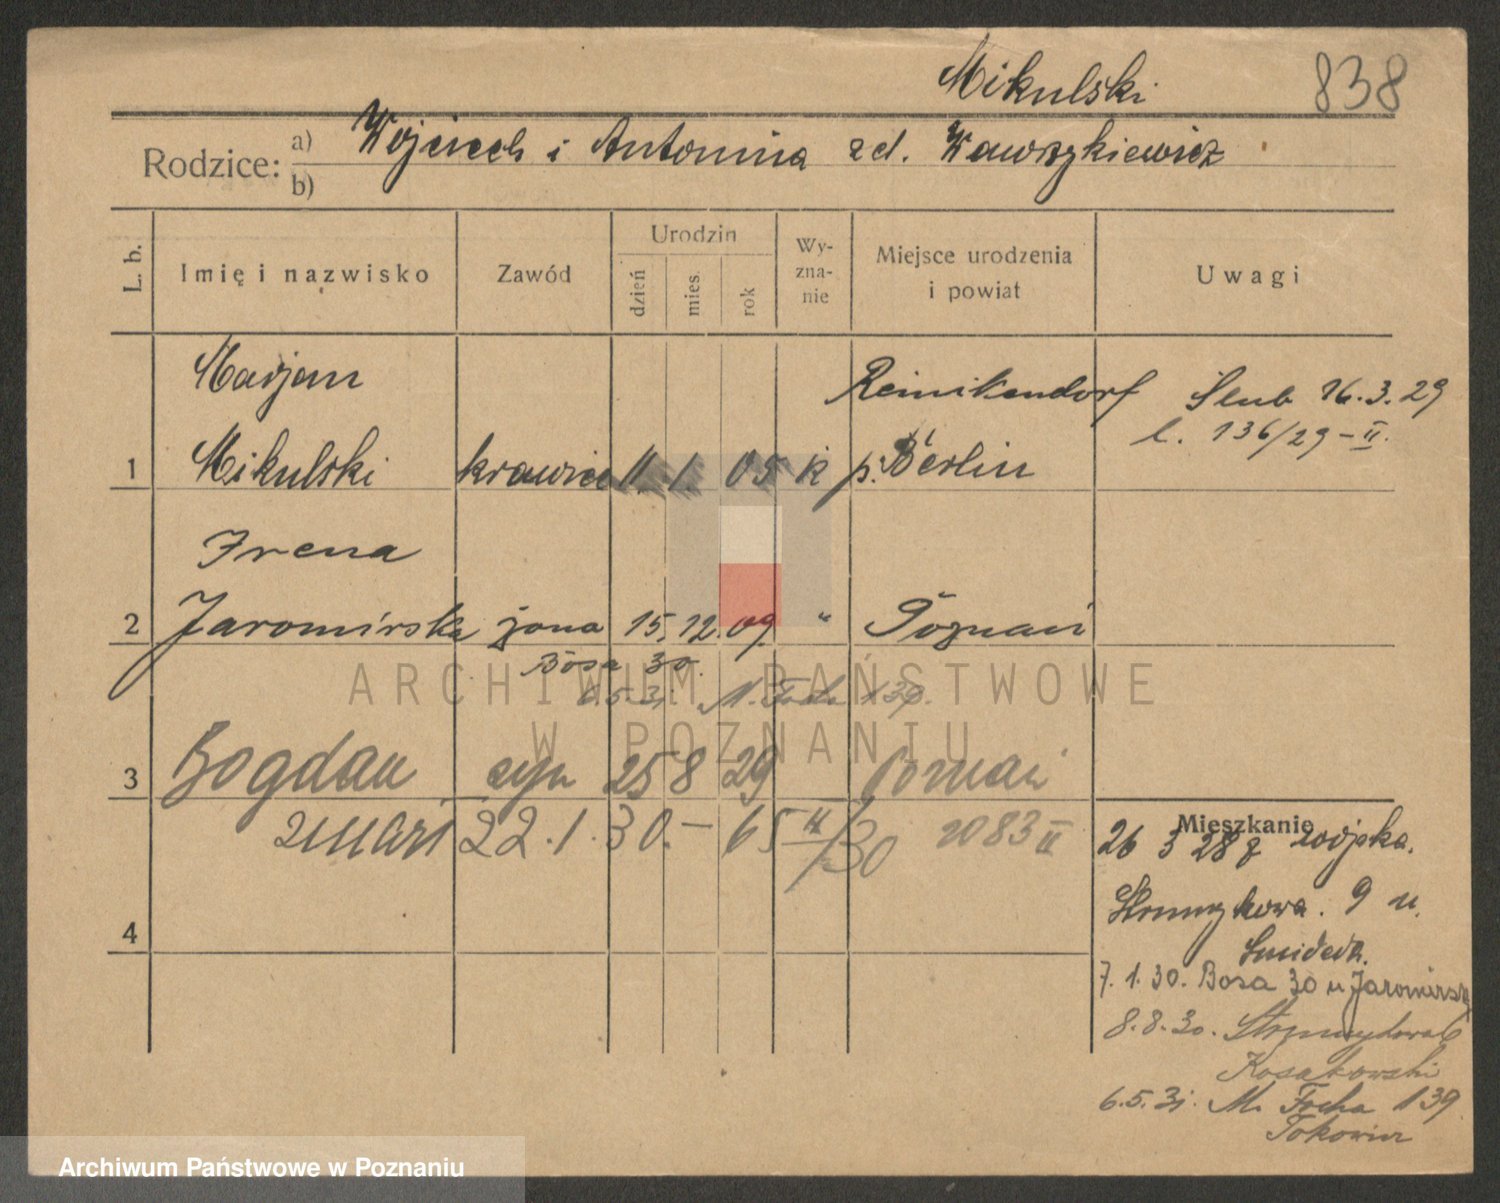 Mikulski 838
Rodzice: a) Wojciech i Antonina zd. Wawrzykiewicz
b)
L. b. Imię i nazwisko Zawód Urodzin Wy- Miejsce urodzenia Uwagi
dzień mies. rok zna- i powiat
nie
Marjan Reinikendorf Ślub 16.3.29
l. 136/29-II.
1 Mikulski krawiec 11. 1. 05 k p. Berlin
Irena
2 Jaromirska żona 15. 12. 09. " Poznań
Bosa 30.
6.5.31. M. Focha 139.
ARCHIWUM PAŃSTWOWE
W POZNANIU
3 Bogdan syn 25 8 29 Poznań
zmarł 22.1.30.- 65 II/30 2083 II
Mieszkanie
26 3 28 z wojska.
4 9 u.
7.1.30. Bosa 30 u Jaromirsk
8.8.30. Strzałkowa 6
Kosakowski
6.5.31. M. Focha 139
Archiwum Państwowe w Poznaniu